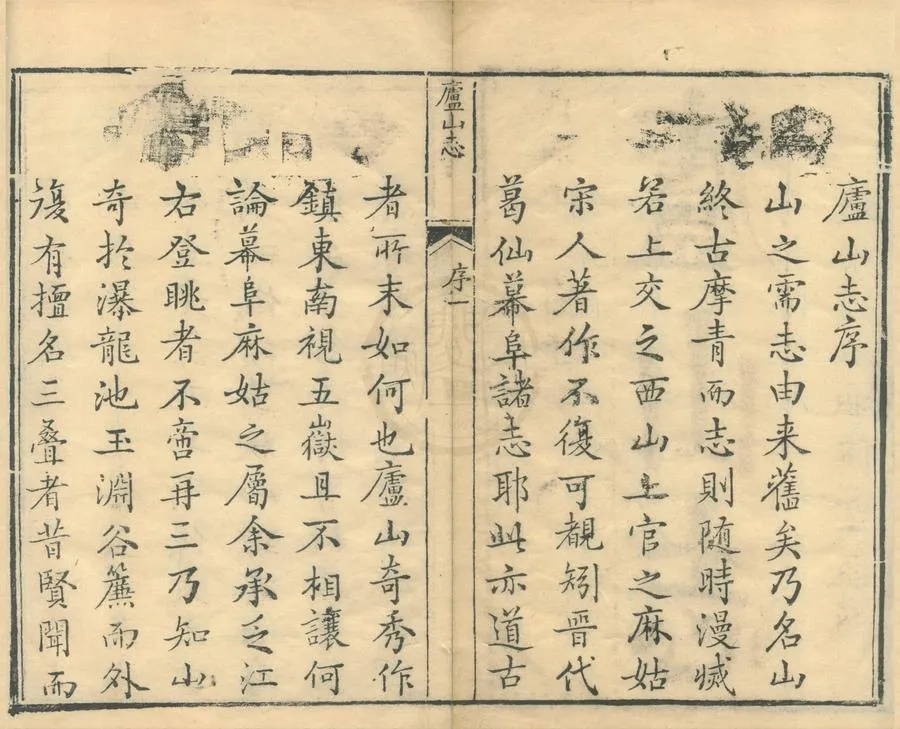 廬山志序
山之需志由来舊矣乃名山
終古摩青而志則随時漫烕
若上交之西山上官之麻姑
宋人著作不復可覩矧晋代
葛仙幕阜諸志耶此亦道古
廬山志
序一
者所未如何也廬山奇秀作
鎮東南視五嶽且不相讓何
論幕阜麻姑之屬余承乏江
右登眺者不啻再三乃知山
奇於瀑龍池玉淵谷簾而外
復有擅名三疊者昔賢聞而